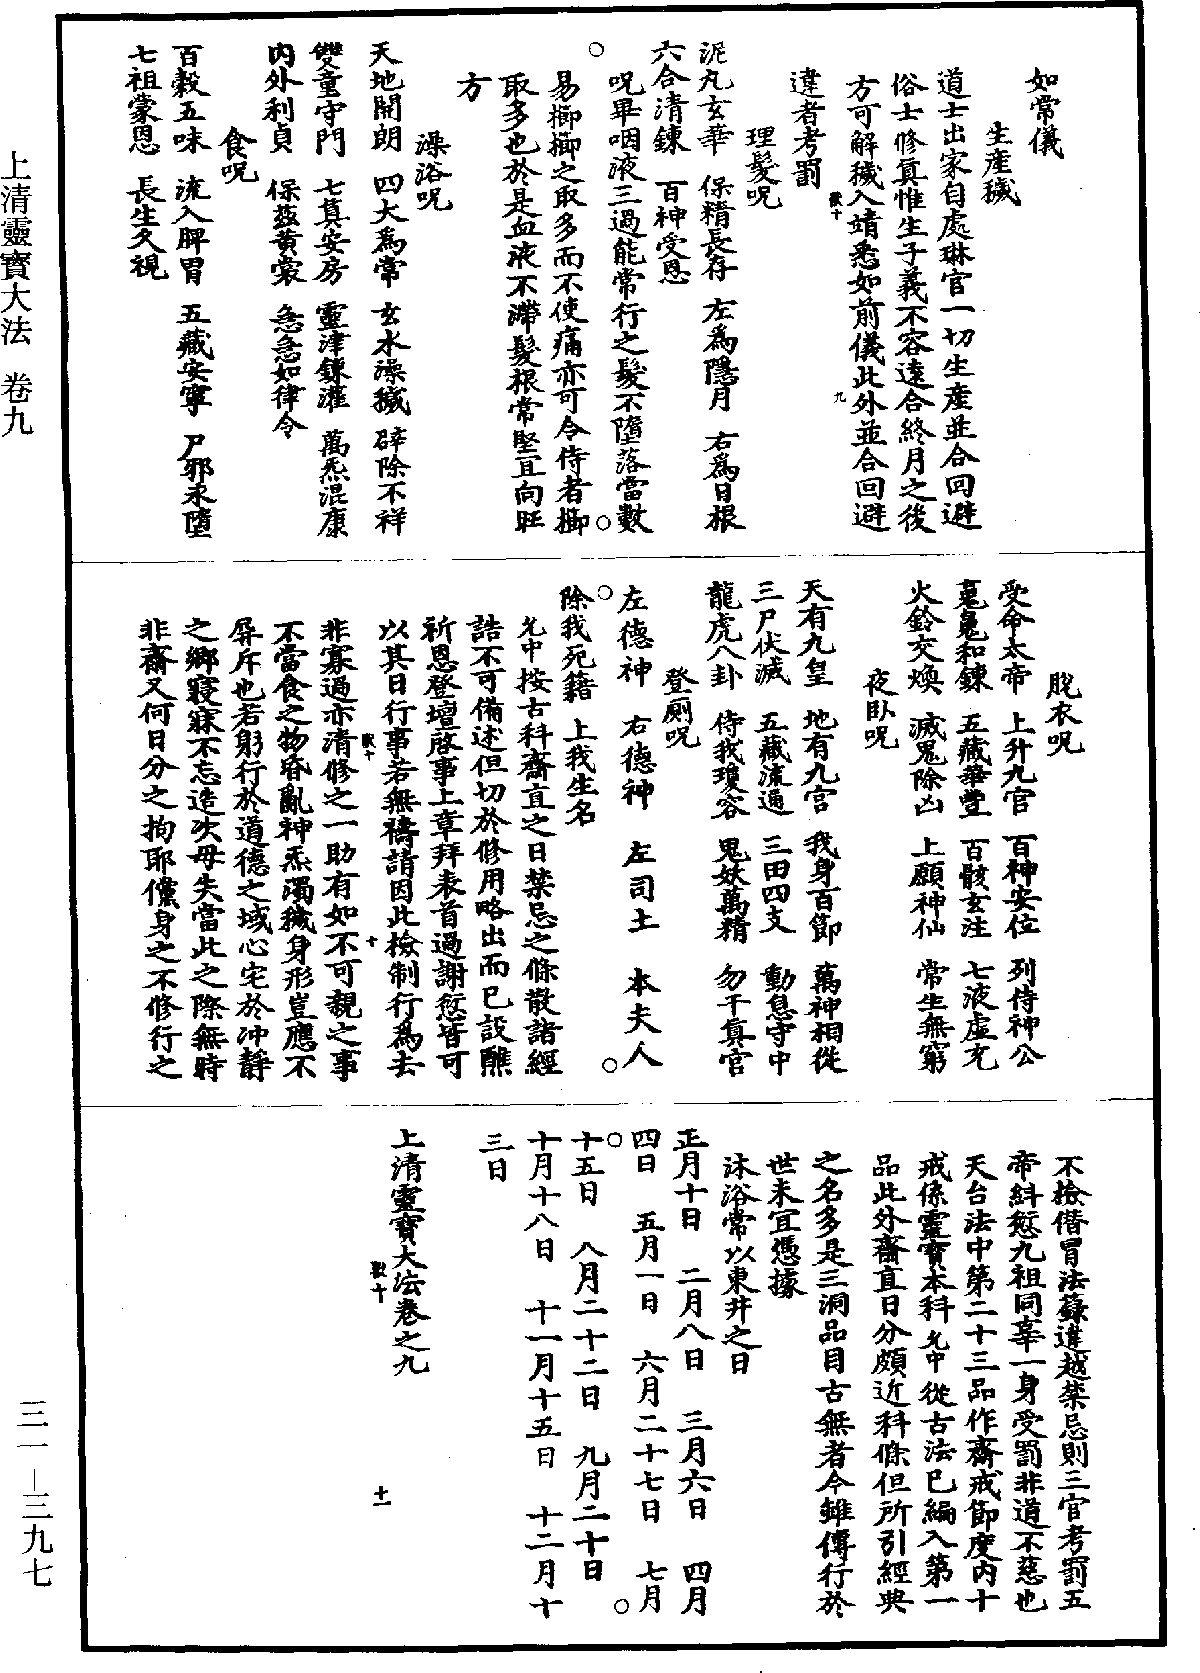 上清靈寶大法　卷九
三一—三九七
如常儀
生產穢
道士出家自處琳宮一切生產並合回避
俗士修真惟生子義不容遠合終月之後
方可解穢入靖悉如前儀此外並合回避
違者考罰
理髮呪
泥丸玄華　保精長存　左為隱月　右為日根
六合清鍊　百神受恩
呪畢咽液三過能常行之髮不墮落當數
易櫛櫛之取多而不使痛亦可令侍者櫛
取多也於是血液不滯髮根常堅且向旺
方
澡浴呪
天地開朗　四大為常　玄水澡穢　辟除不祥
雙童守門　七真安房　靈津鍊灌　萬炁混康
內外利貞　保茲黃裳　急急如律令
食呪
百穀五味　流入脾胃　五藏安寧　尸邪永墮
七祖蒙恩　長生久視
脫衣呪
受命太帝　上升九宮　百神安位　列侍神公
魂魄和鍊　五藏華豐　百骸玄注　七液虛充
火鈴交煥　滅鬼除凶　上願神仙　常生無窮
夜臥呪
天有九皇　地有九宮　我身百節　萬神相從
三尸伏滅　五藏流通　三田四支　動息守中
龍虎八卦　侍我瓊容　鬼妖萬精　勿干真官
登廁呪
左德神　右德神　左司土　本夫人
除我死籍　上我生名
允中按古科齋直之日禁忌之條散諸經
誥不可備述但切於修用略出而已設醮
祈恩登壇啓事上章拜表首過謝愆皆可
以其日行事若無禱請因此檢制行為去
非寡過亦清修之一助有如不可親之事
不當食之物昏亂神炁濁穢身形豈應不
屏斥也若躬行於道德之域心宅於沖靜
之鄉寢寐不忘造次毋失當此之際無時
非齋又何日分之拘耶儻身之不修行之
不檢借冒法籙違越禁忌則三官考罰五
帝糾愆九祖同辜一身受罰非道不慈也
天台法中第二十三品作齋戒節度內十
戒係靈寶本科允中從古法已編入第一
品此外齋直日分頗近科條但所引經典
之名多是三洞品目古無者今雖傳行於
世未宜憑據
沐浴常以東井之日
正月十日　二月八日　三月六日　四月
四日　五月一日　六月二十七日　七月
十五日　八月二十二日　九月二十日
十月十八日　十一月十五日　十二月十
三日
上清靈寶大法卷之九